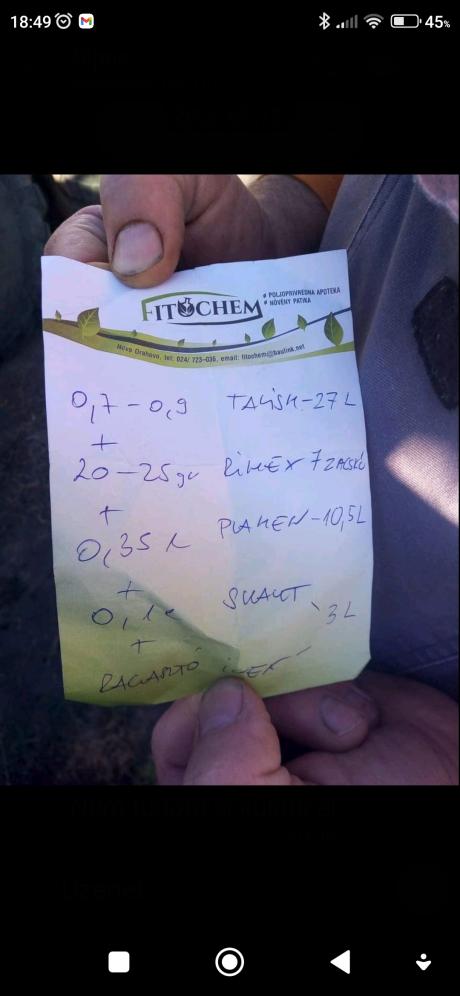 18:49 45%
FITOCHEM
POLJOPRIVREDNA APOTEKA
NÖVÉNY PATIKA
Novo Orahovo, tel: 024/ 723-036, email: fitochem@baulink.net
0,7-0,9 TALISM-27 L
+
20-25 gr RIMEX 7 ZACSKÓ
+
0,35 L PLAMEN-10,5L
+
0,1 3 L
+
RAGASZTÓ
Üzenet